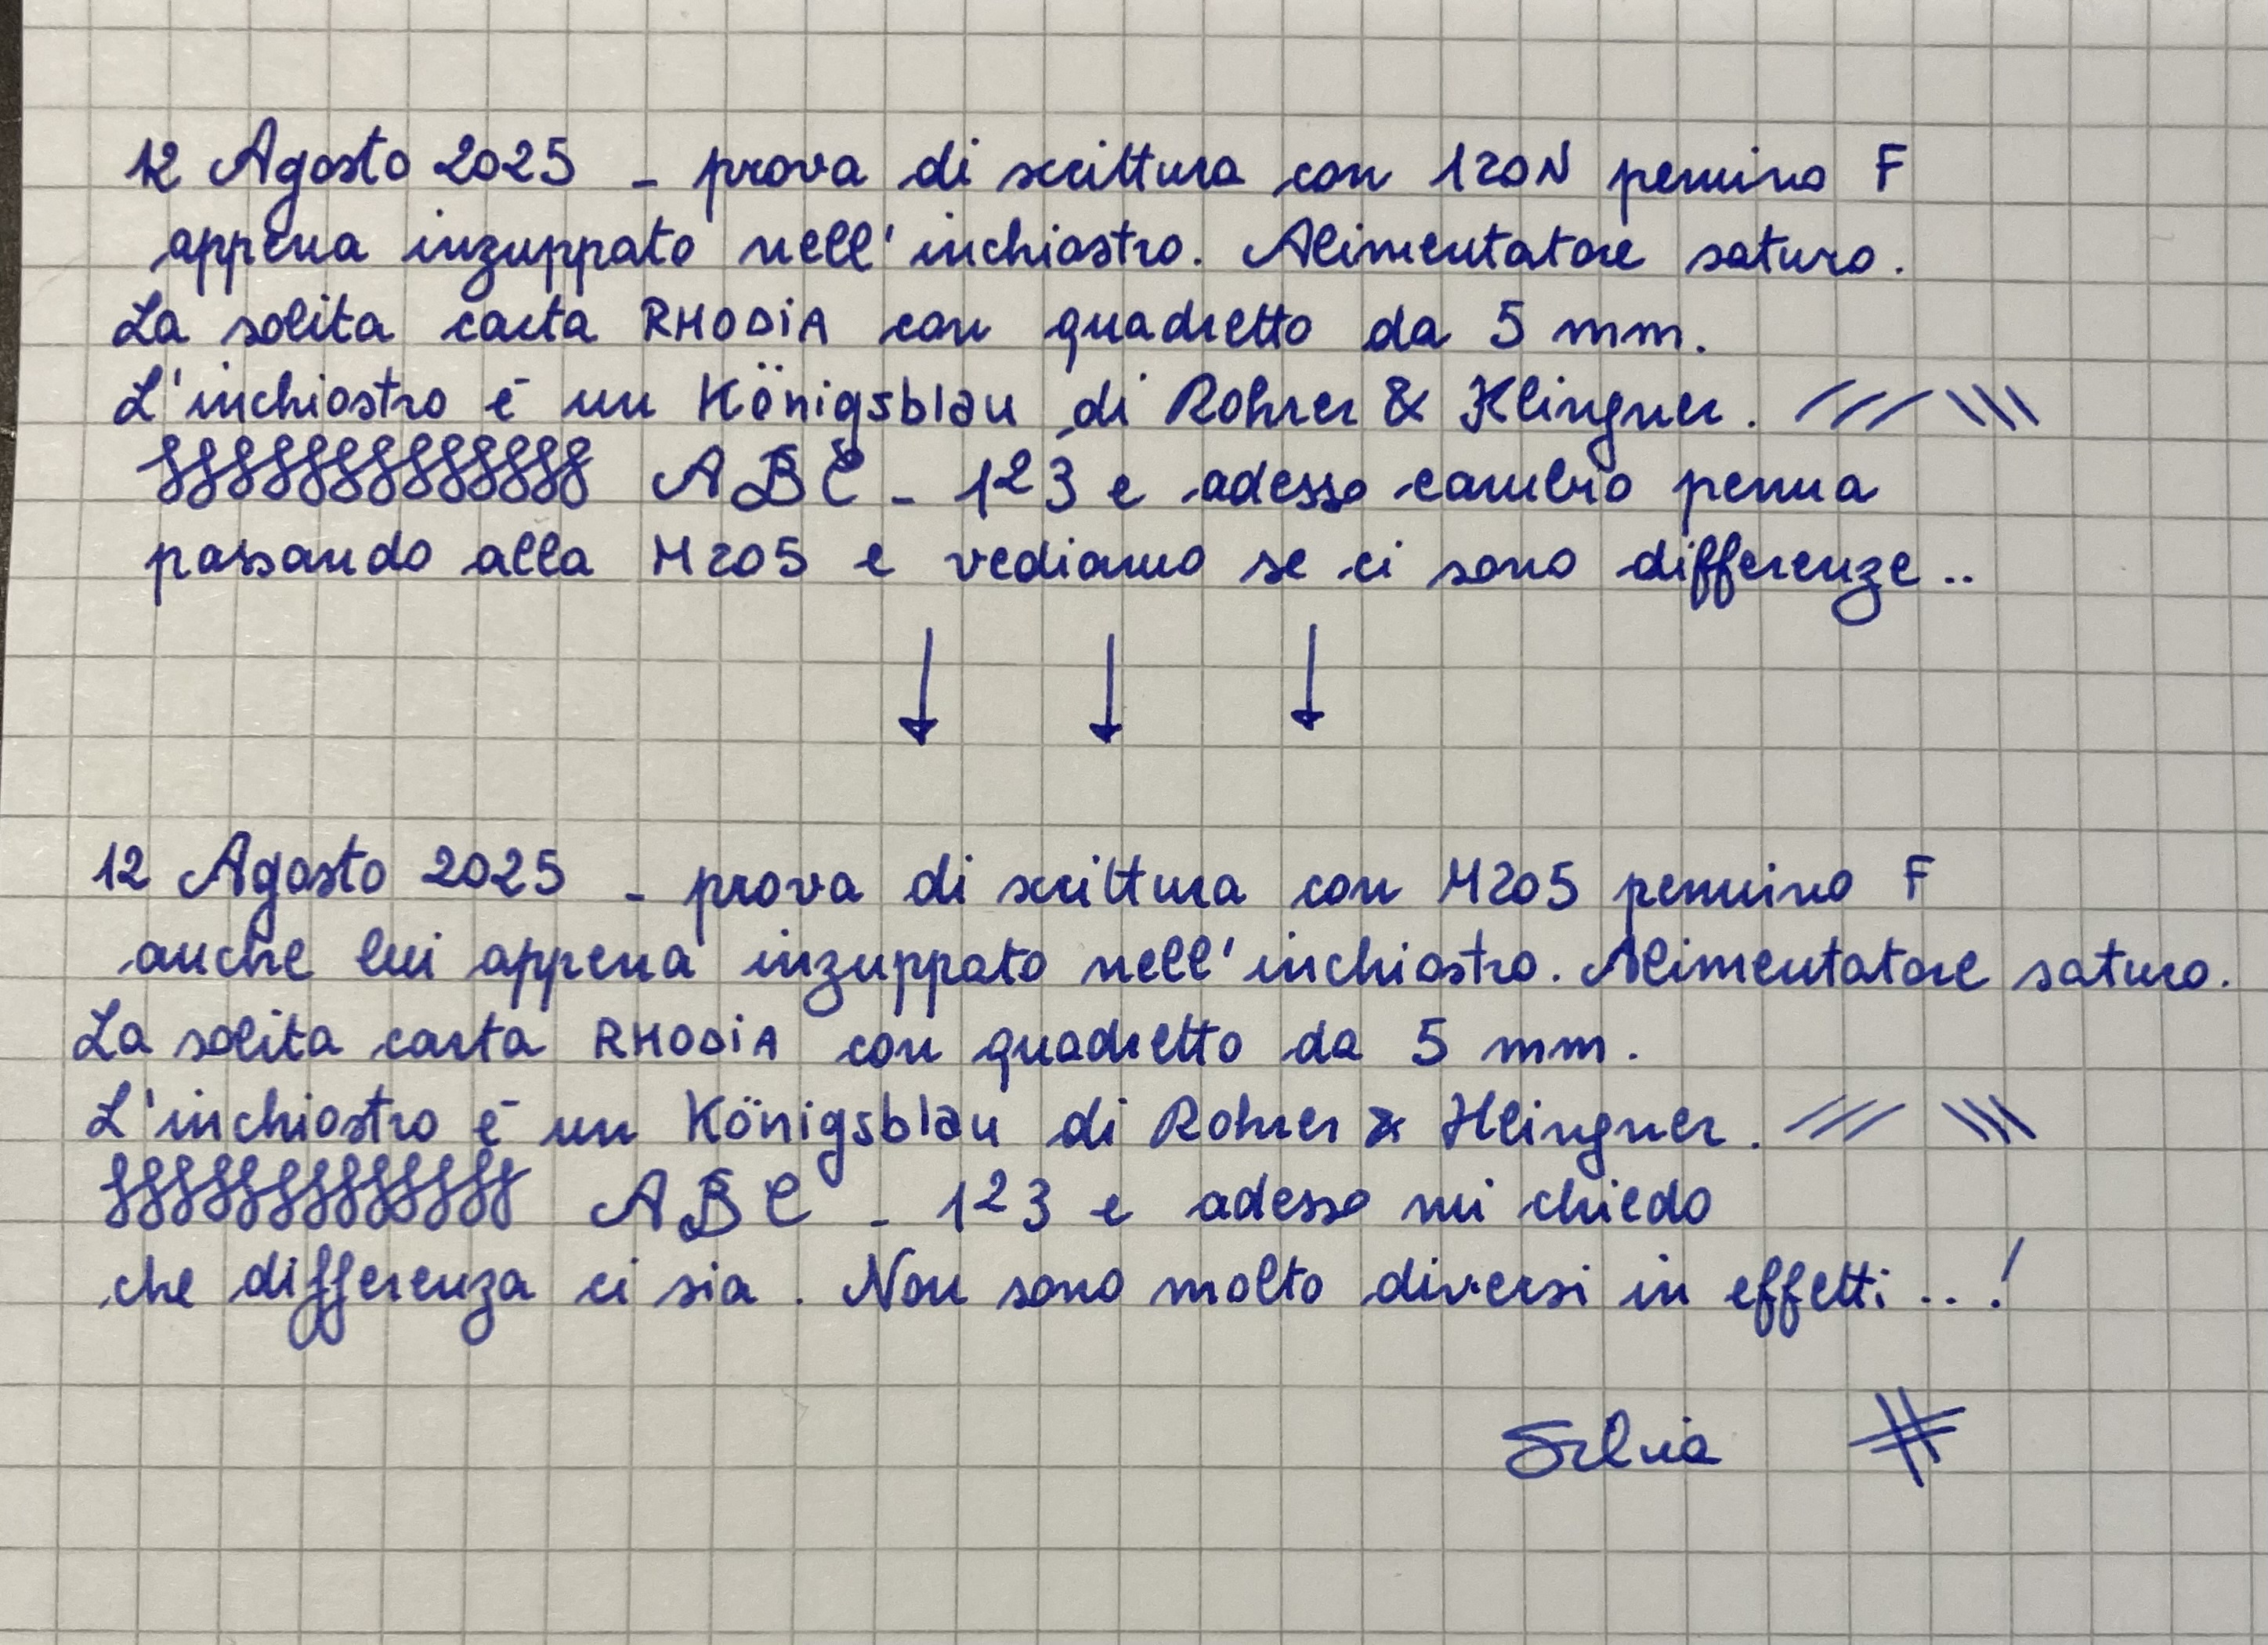 12 Agosto 2025 - prova di scrittura con 120N pennino F
appena inzuppato nell'inchiostro. Alimentatore saturo.
La solita carta RHODiA con quadretto da 5 mm.
L'inchiostro è un Königsblau di Rohrer & Klingner.
ABC - 123 e adesso cambio penna
passando alla M205 e vediamo se ci sono differenze..
12 Agosto 2025 - prova di scrittura con M205 pennino F
anche lui appena inzuppato nell'inchiostro. Alimentatore saturo.
La solita carta RHODiA con quadretto da 5 mm.
L'inchiostro è un Königsblau di Rohrer & Klingner.
ABC - 123 e adesso mi chiedo
che differenza ci sia. Non sono molto diversi in effetti...!
Silvia #